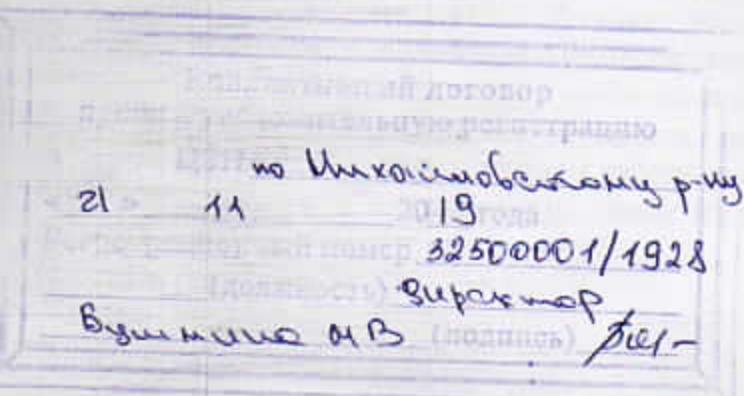 Коллективный договор
прошел уведомительную регистрацию
по Михайловскому р-ну
« 21 » 11 2019 года
Регистрационный номер 32500001/1928
(должность) директор
(подпись)